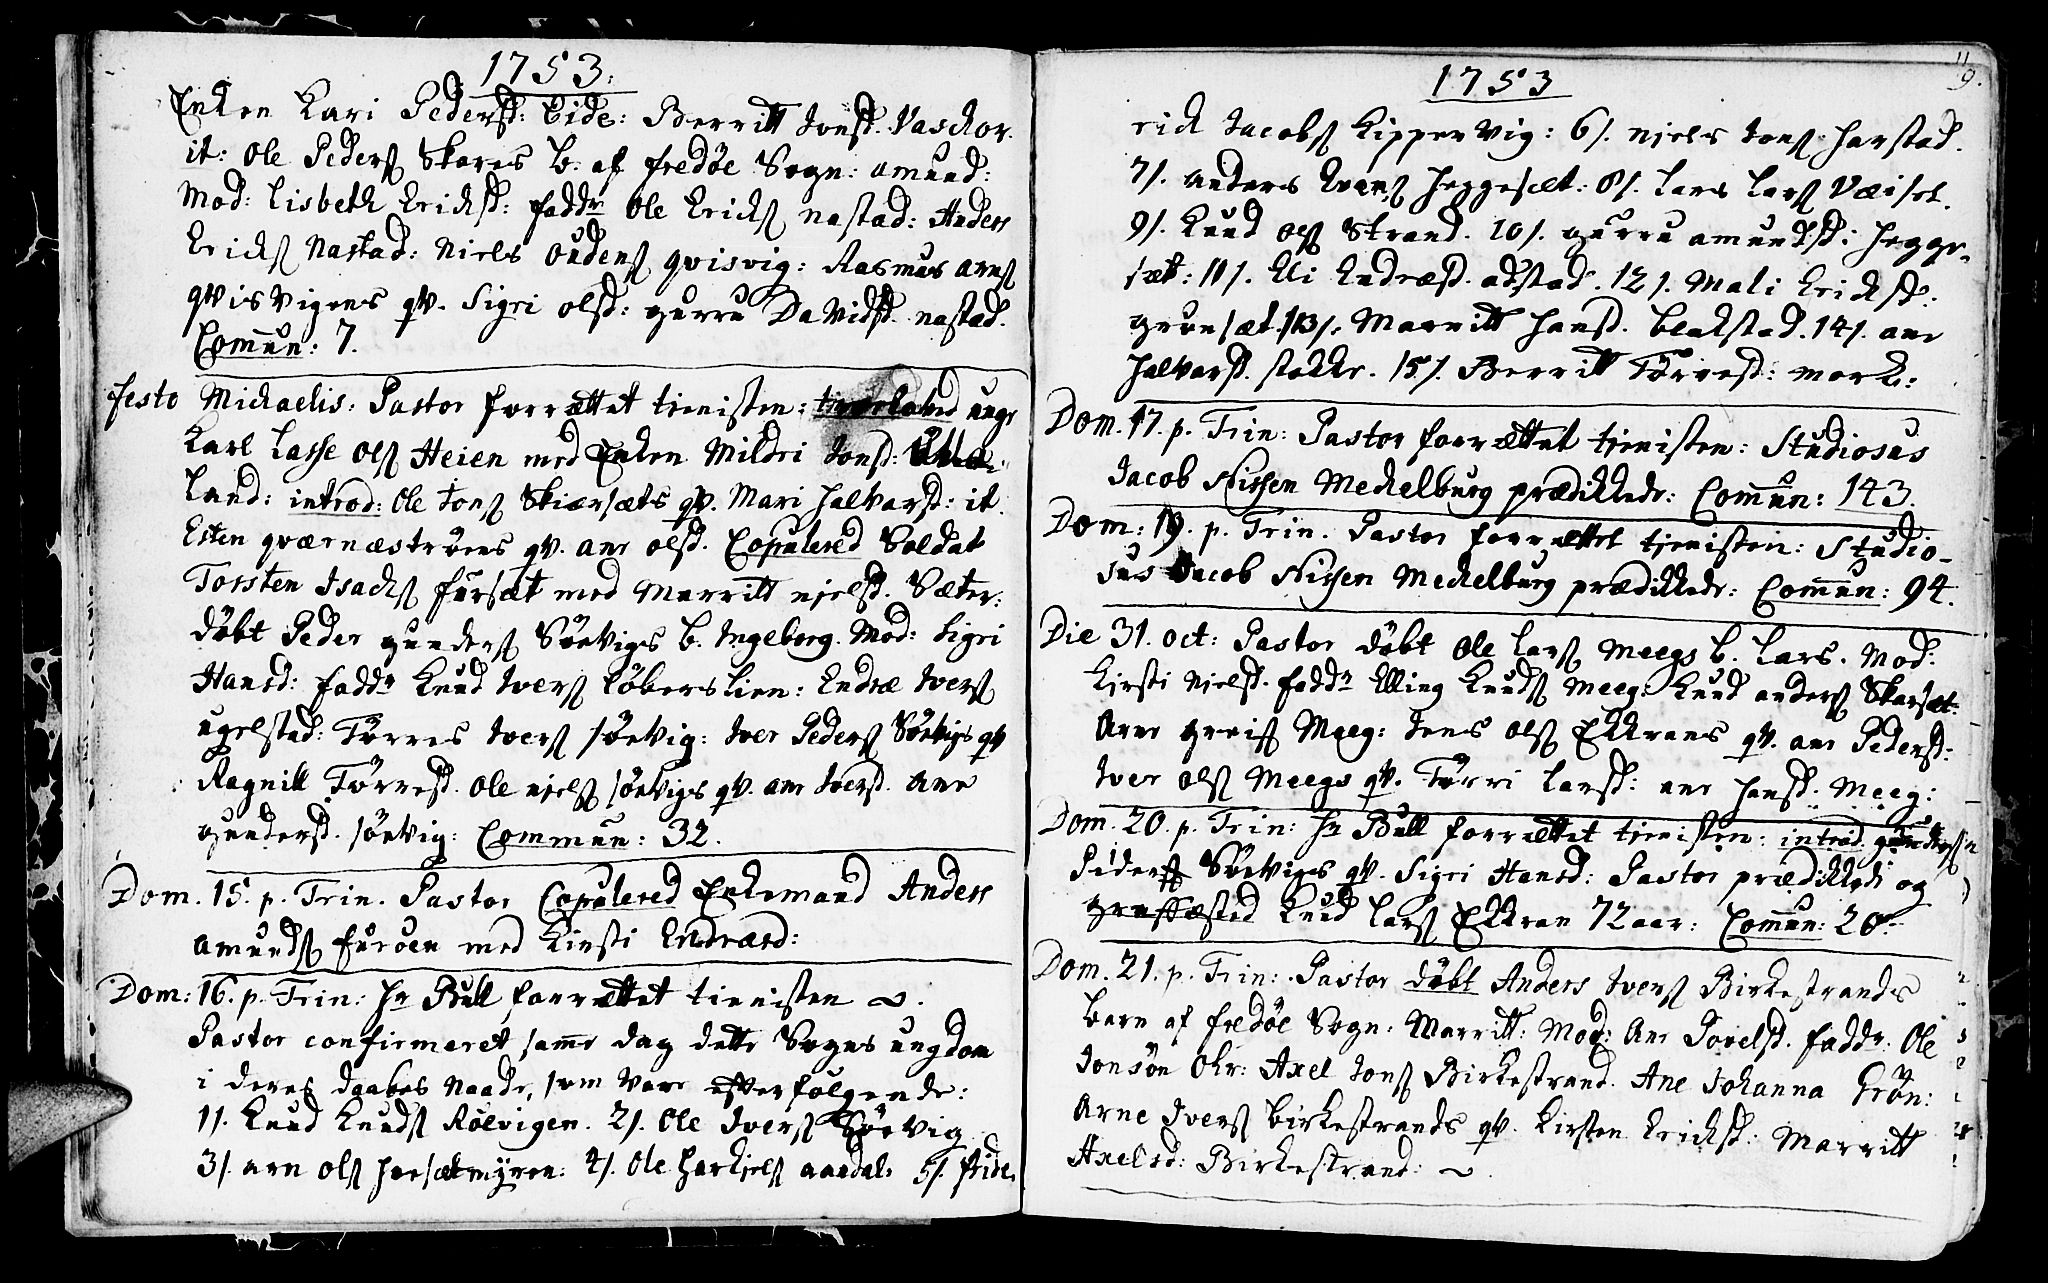 1753.
Enken Kari Pedersd: Eide: Berritt Jonsd. Vaskor.
it: Ole Peders Skares b. af fredöe Sogn: Amund:
Mod: Lisbeth Ericksd: faddr Ole Ericks Nastad: Anders
Ericks Nastad: Niels Oudens qvisvig: Rasmus Arns
qvisvigens qv. Sigri Olsd: gurru Davidsd. Nastad.
Comun: 7.
festo Michaelis: Pastor forrættet tienisten: unge
Karl Lasse Ols Heien med Enken Mildri Jonsd:
land: introd: Ole Jons Skiærsæts qv. Mari Halvarsd: it.
Esten qværnæströens qv. Ane Olsd. Copulered Soldat
Torsten Isachs Fursæt med Marritt Nielsd. Sæter:
döbt Peder gunders Söevigs b. Ingeborg. Mod: Sigri
Hansd: faddr Knud Ivers Löberslien: Endræ Ivers
ugelstad: Törres Ivers Söevig: Iver Peders Söevigs qv
Ragnill Törresd. Ole Niels Söevigs qv. Ane Iversd. Ane
gundersd. Söevig: Commun: 32.
Dom. 15. p. Trin. Pastor Copulered Enkemand Anders
Amunds furöen med Kirsti Endræsd:
Dom: 16. p. Trin: Hr Bull forrættet tienisten
Pastor confirmeret samme dag dette Sogns ungdom
i deres daabes Naade, som vare efterfölgende:
1/. Knud Knuds Röevigen. 2/. Ole Ivers Söevig
3/. Arn Ols Horsætmyren: 4/. Ole Harkiels Aandal: 5/. fride.
9.
1753
rick Jacobs Kippervig: 6/. Niels Jons Harstad.
7/. Anders Evens Heggesæt: 8/. Lars Lars Væiset.
9/. Knud Ols Strand. 10/. gurru Amundsd: Hegge-
sæt: 11/. Eli Endræsd. Adstad. 12/. Mali Ericksd:
grønsæt. 13/. Marritt Hansd. Blakstad. 14/. Ane
Halvarsd. Stokke. 15/. Berritt Törresd: Mork:
Dom. 17. p. Trin: Pastor forrættet tienisten: Studiosus
Jacob Nissen Meckelburg prædikkede: Comun: 143.
Dom: 19. p. Trin. Pastor forrættet tienisten: Studio-
sus Jacob Nissen Meckelburg prædikkede: Comun: 94.
Die 31. oct: Pastor döbt Ole Lars Meegs b. Lars. Mod:
Kirsti Nielsd. faddr Elling Knuds Meeg: Knud Anders Skarsæt:
Arne greis Meeg: Jens Ols Ekkrens qv. Ane Pedersd:
Iver Ols Meegs qv. Törri Larsd: Ane Hansd. Meeg:
Dom. 20. p. Trin: Hr Bull forrættet tienisten: introd.
Peders Söevigs qv. Sigri Hansd: Pastor prædikkede og
græffæsted Knud Lars Ekkran 72 aar: Comun: 20.
Dom. 21. p. Trin: Pastor döbt Anders Ivers Birkestrands
barn af fredöe Sogn: Marritt: Mod: Ane Povelsd. faddr: Ole
Jonsön Ohr: Axel Jons Birkestrand. Ane Johanna Grön:
Arne Ivers birkestrands qv. Kirsten Ericksd: Marritt
Axelsd: Birkestrand: